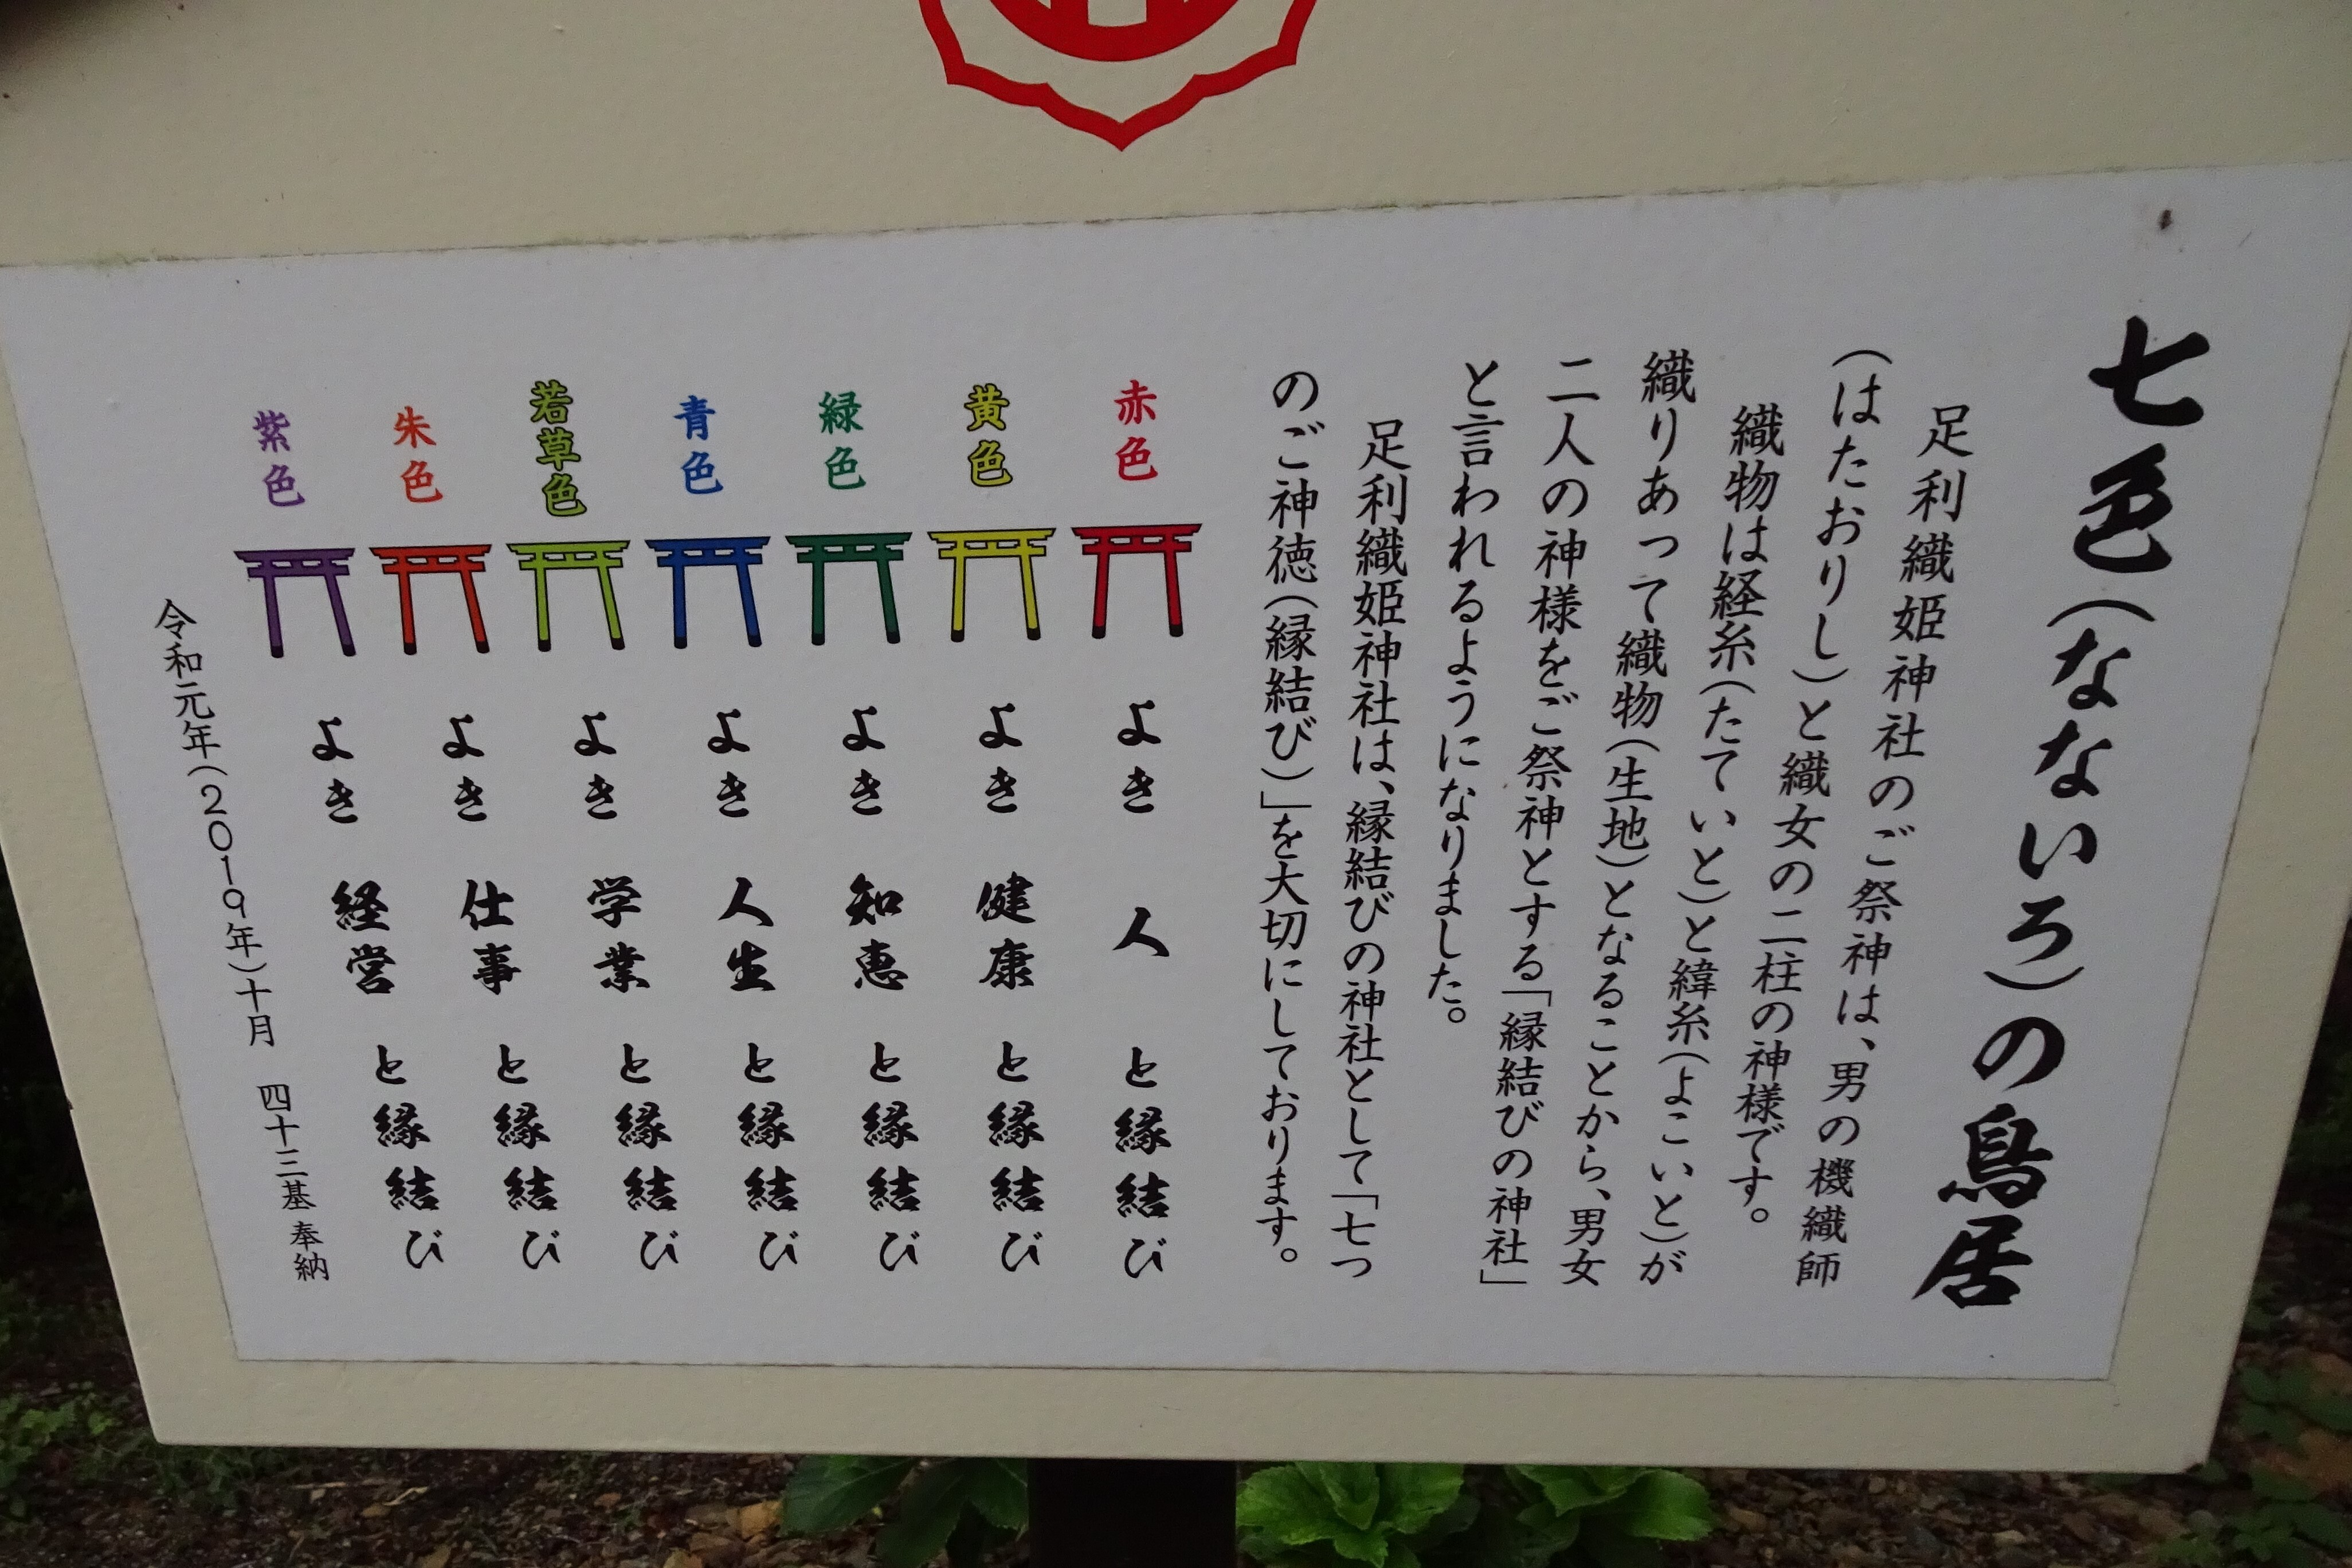 七色(なないろ)の鳥居
足利織姫神社のご祭神は、男の機織師
(はたおりし)と織女の二柱の神様です。
織物は経糸(たていと)と緯糸(よこいと)が
織りあって織物(生地)となることから、男女
二人の神様をご祭神とする「縁結びの神社」
と言われるようになりました。
足利織姫神社は、縁結びの神社として「七つ
のご神徳(縁結び)」を大切にしております。
赤色 よき 人 と縁結び
黄色 よき 健康 と縁結び
緑色 よき 知恵 と縁結び
青色 よき 人生 と縁結び
若草色 よき 学業 と縁結び
朱色 よき 仕事 と縁結び
紫色 よき 経営 と縁結び
令和元年(2019年)十月 四十三基 奉納